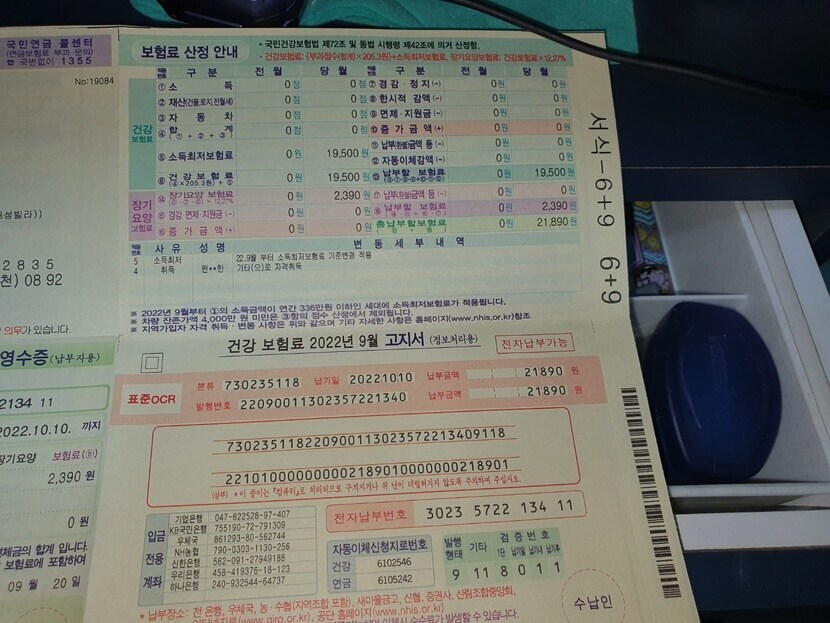 국민연금 콜센터
(연금보험료 부과 문의)
국번없이 1355
No:19084
보험료 산정 안내
• 국민건강보험법 제72조 및 동법 시행령 제42조에 의거 산정함.
• 건강보험료: (부과점수(합계)×205.3원)+소득최저보험료, 장기요양보험료: 건강보험료×12.27%
구 분 전 월 당 월 구 분 전 월 당 월
건강 보험료
① 소 득 0 점 0 점 ⑦ 경감·정지(-) 0 원 0 원
② 재산(건물,토지,전월세) 0 점 0 점 ⑧ 한시적 감액(-) 0 원 0 원
③ 자 동 차 0 점 0 점 ⑨ 면제·지원금(-) 0 원 0 원
④ 합 계 (①+②+③) 0 점 0 점 ⑩ 증 가 금 액(+) 0 원 0 원
⑤ 소득최저보험료 0 원 19,500 원 ⑪ 납부(환불)금액 등(-) 0 원 0 원
⑫ 자동이체감액(-) 0 원 0 원
⑥ 건 강 보 험 료 (④×205.3원)+⑤ 0 원 19,500 원 ⑬ 납부할 보험료 0 원 19,500 원
장기 요양 보험료
⑭ 장기요양 보험료 0 원 2,390 원 ⑰ 납부(환불)금액 등(-) 0 원 0 원
⑮ 경감·면제·지원금(-) 0 원 0 원 ⑱ 납부할 보험료 0 원 2,390 원
⑯ 증 가 금 액(+) 0 원 0 원 총납부할보험료 0 원 21,890 원
사 유 성 명 변 동 세 부 내 역
5 소득최저 22.9월 부터 소득최저보험료 기준변경 적용
4 취득 편**한 기타(으)로 자격취득
※ 2022년 9월부터 ①의 소득금액이 연간 336만원 이하인 세대에 소득최저보험료가 적용됩니다.
※ 차량 잔존가액 4,000만 원 미만은 ③항의 점수 산정에서 제외됩니다.
※ 지역가입자 자격 취득·변동 사항은 위와 같으며 기타 자세한 사항은 홈페이지(www.nhis.or.kr)참조
서식-6+9 6+9
2 8 3 5
08 92
의무가 있습니다.
건강 보험료 2022년 9월 고지서 (정보처리용)
전자납부가능
표준OCR
분류 730235118 납기일 20221010 납부금액 21890 원
발행번호 2209001130235722 1340 납부금액 21890 원
730235118220900113023572213409118
221010000000002189010000000218901
(상부) * 이 증이는 「컴퓨터」로 처리되므로 구겨지거나 위 난이 더럽혀지지 않도록 주의하여 주십시오.
영수증 (납부자용)
2134 11
2022.10.10. 까지
장기요양 보험료
2,390 원
0 원
체금의 합계 입니다.
보험료에 포함하여
09 월 20 일
입금 전용 계좌
기업은행 047-622528-97-407
KB국민은행 755190-72-791309
우체국 861293-80-562744
NH농협 790-0303-1130-256
신한은행 562-091-27949188
우리은행 458-419376-18-123
하나은행 240-932544-64737
전자납부번호 3023 5722 134 11
자동이체신청지로번호
건강 6102546
연금 6105242
발행형태 기타 검 증 번 호
1란 납기월 납기내 납기후
9 11 8 0 1 1
* 납부장소: 전 은행, 우체국, 농·수협(지역조합 포함), 새마을금고, 신협, 증권사, 산림조합중앙회,
인터넷지로(www.giro.or.kr), 공단 홈페이지(www.nhis.or.kr)
수납인